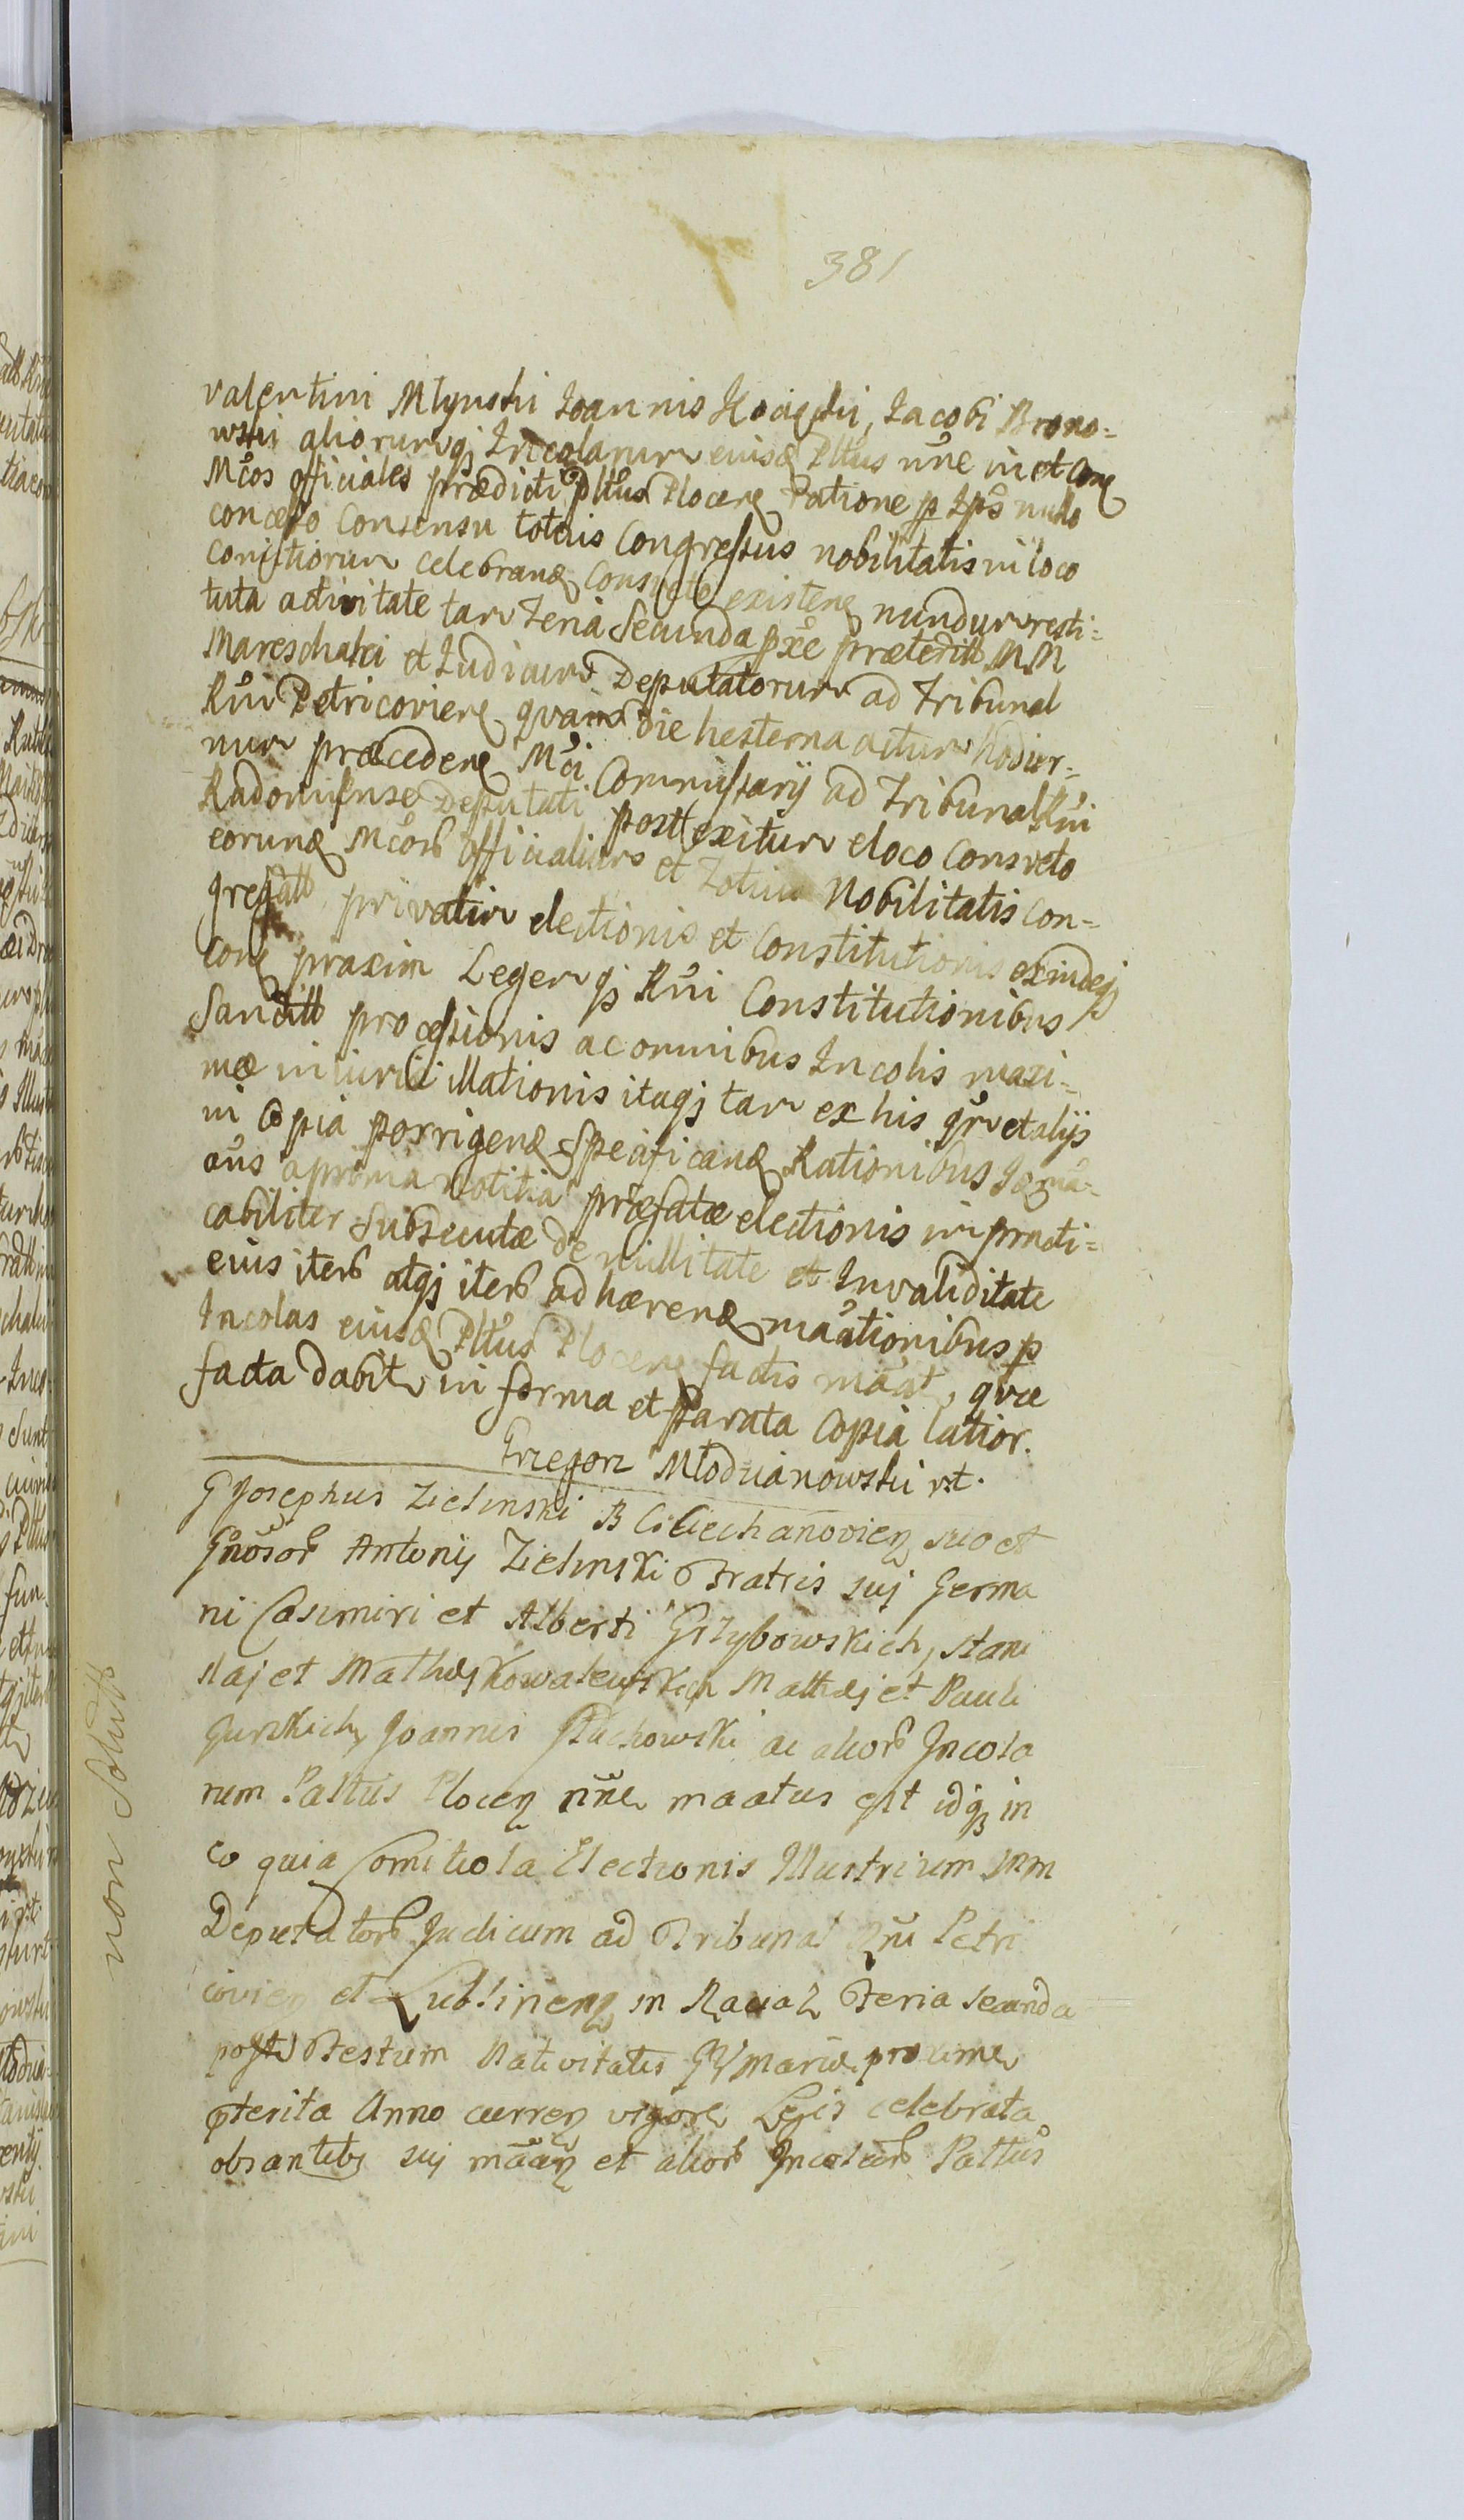 381
Valentini Mlynski Ioannis Kocięcki, Iacobi Brono=
wski aliorumqȝ Incolarum eiusd Pltus nne in et Con
Mcos officiales prædicti Pltus Plocen Ratione p Ips nullo
concesso Consensu totius Congressus nobilitatis in loco
comitiorum celebrand Consveto existen nundum resti=
tuta activitate tam Feria Secunda pxe præteritt MM
Mareschalci et Iudicum Deputatorum ad Tribunal
Rni Petricovien qvam die hesterna actum hodier=
num præceden Mci Commissarij ad Tribunal Rni
Radomiense Deputati post exitum e loco Consveto
eorund Mcorb Officialium et Totius Nobilitatis Con=
gregatt privatim electionis et Constitutionis exindeqȝ
con praxim Legemqȝ Rni Constitutionibus
Sancitt processionis ac omnibus Incolis maxi=
mæ iniuriæ illationis itaqȝ tam ex his qm et alijs
in Copia porrigend Specificand Rationibus
ans a prima notitia præfatæ electionis impracti=
cabiliter subsecutæ de nullitate et Invaliditate
eius iterb atqȝ iterb adhærend mactionibus p
Incolas eiusd Pltus Plocen factis mact, qvæ
facta dabitr in forma et Parata Copia latior.
Grzegorz Młodzianowski rt.
G Josephus Zielinski B C Ciechanovien suo et
Gnosorb Antonij Zielinski Fratris suj Germa
ni Casimiri et Alberti Grzybowskich, Stani
slaj et Mathæj Kowalewskich Mathæj et Pauli
Gurskich, Joannis Stachowski ac aliorb Incola
rum Paltus Plocen nne maatus est idqȝ in
eo quia Comitiola Electionis Illustrium MM
Deputatorb Judicum ad Tribunal Rni Petri
covien et Lublinen in Raciaz Feria secunda
post Festum Nativitatis BV Mariæ proxime
pterita Anno curren vigore Legis celebrata
obsantibȝ suj maan et aliorb Incolarb Paltus
non Solutt